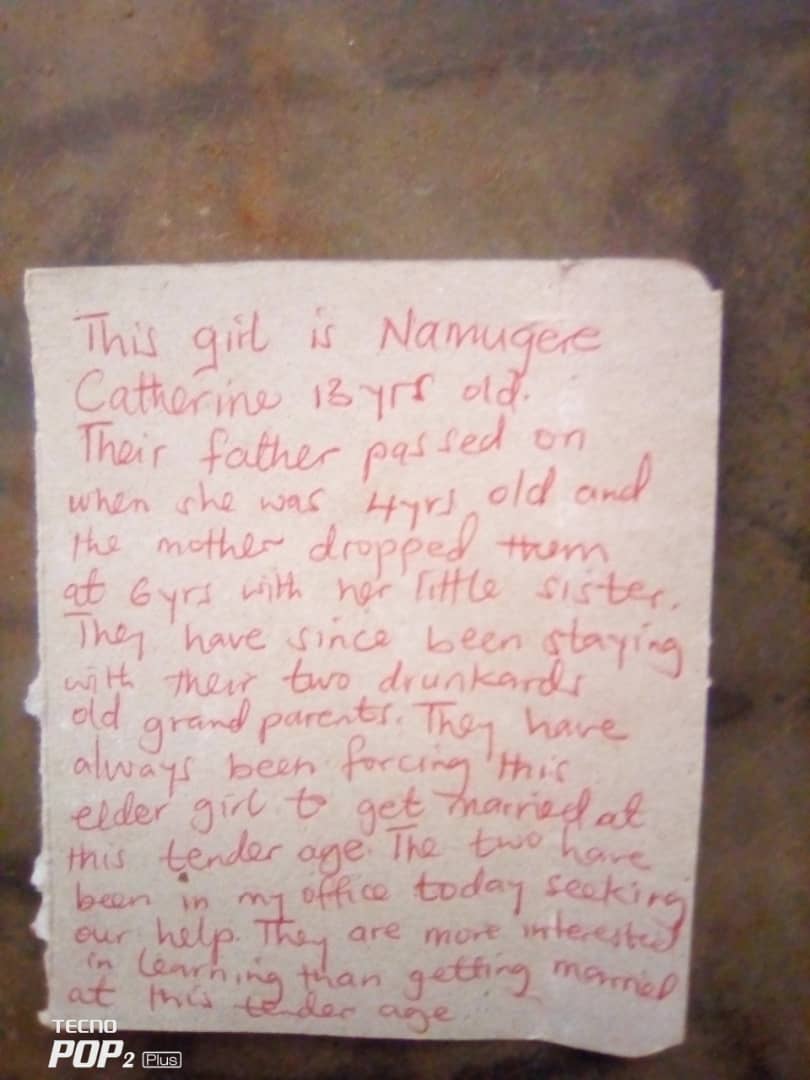 This girl is Namugere
Catherine 13 yrs old.
Their father passed on
when she was 4yrs old and
the mother dropped them
at 6 yrs with her little sister.
They have since been staying
with their two drunkards
old grand parents. They have
always been forcing this
elder girl to get married at
this tender age. The two have
been in my office today seeking
our help. They are more interested
in learning than getting married
at this tender age
TECNO
POP 2 Plus